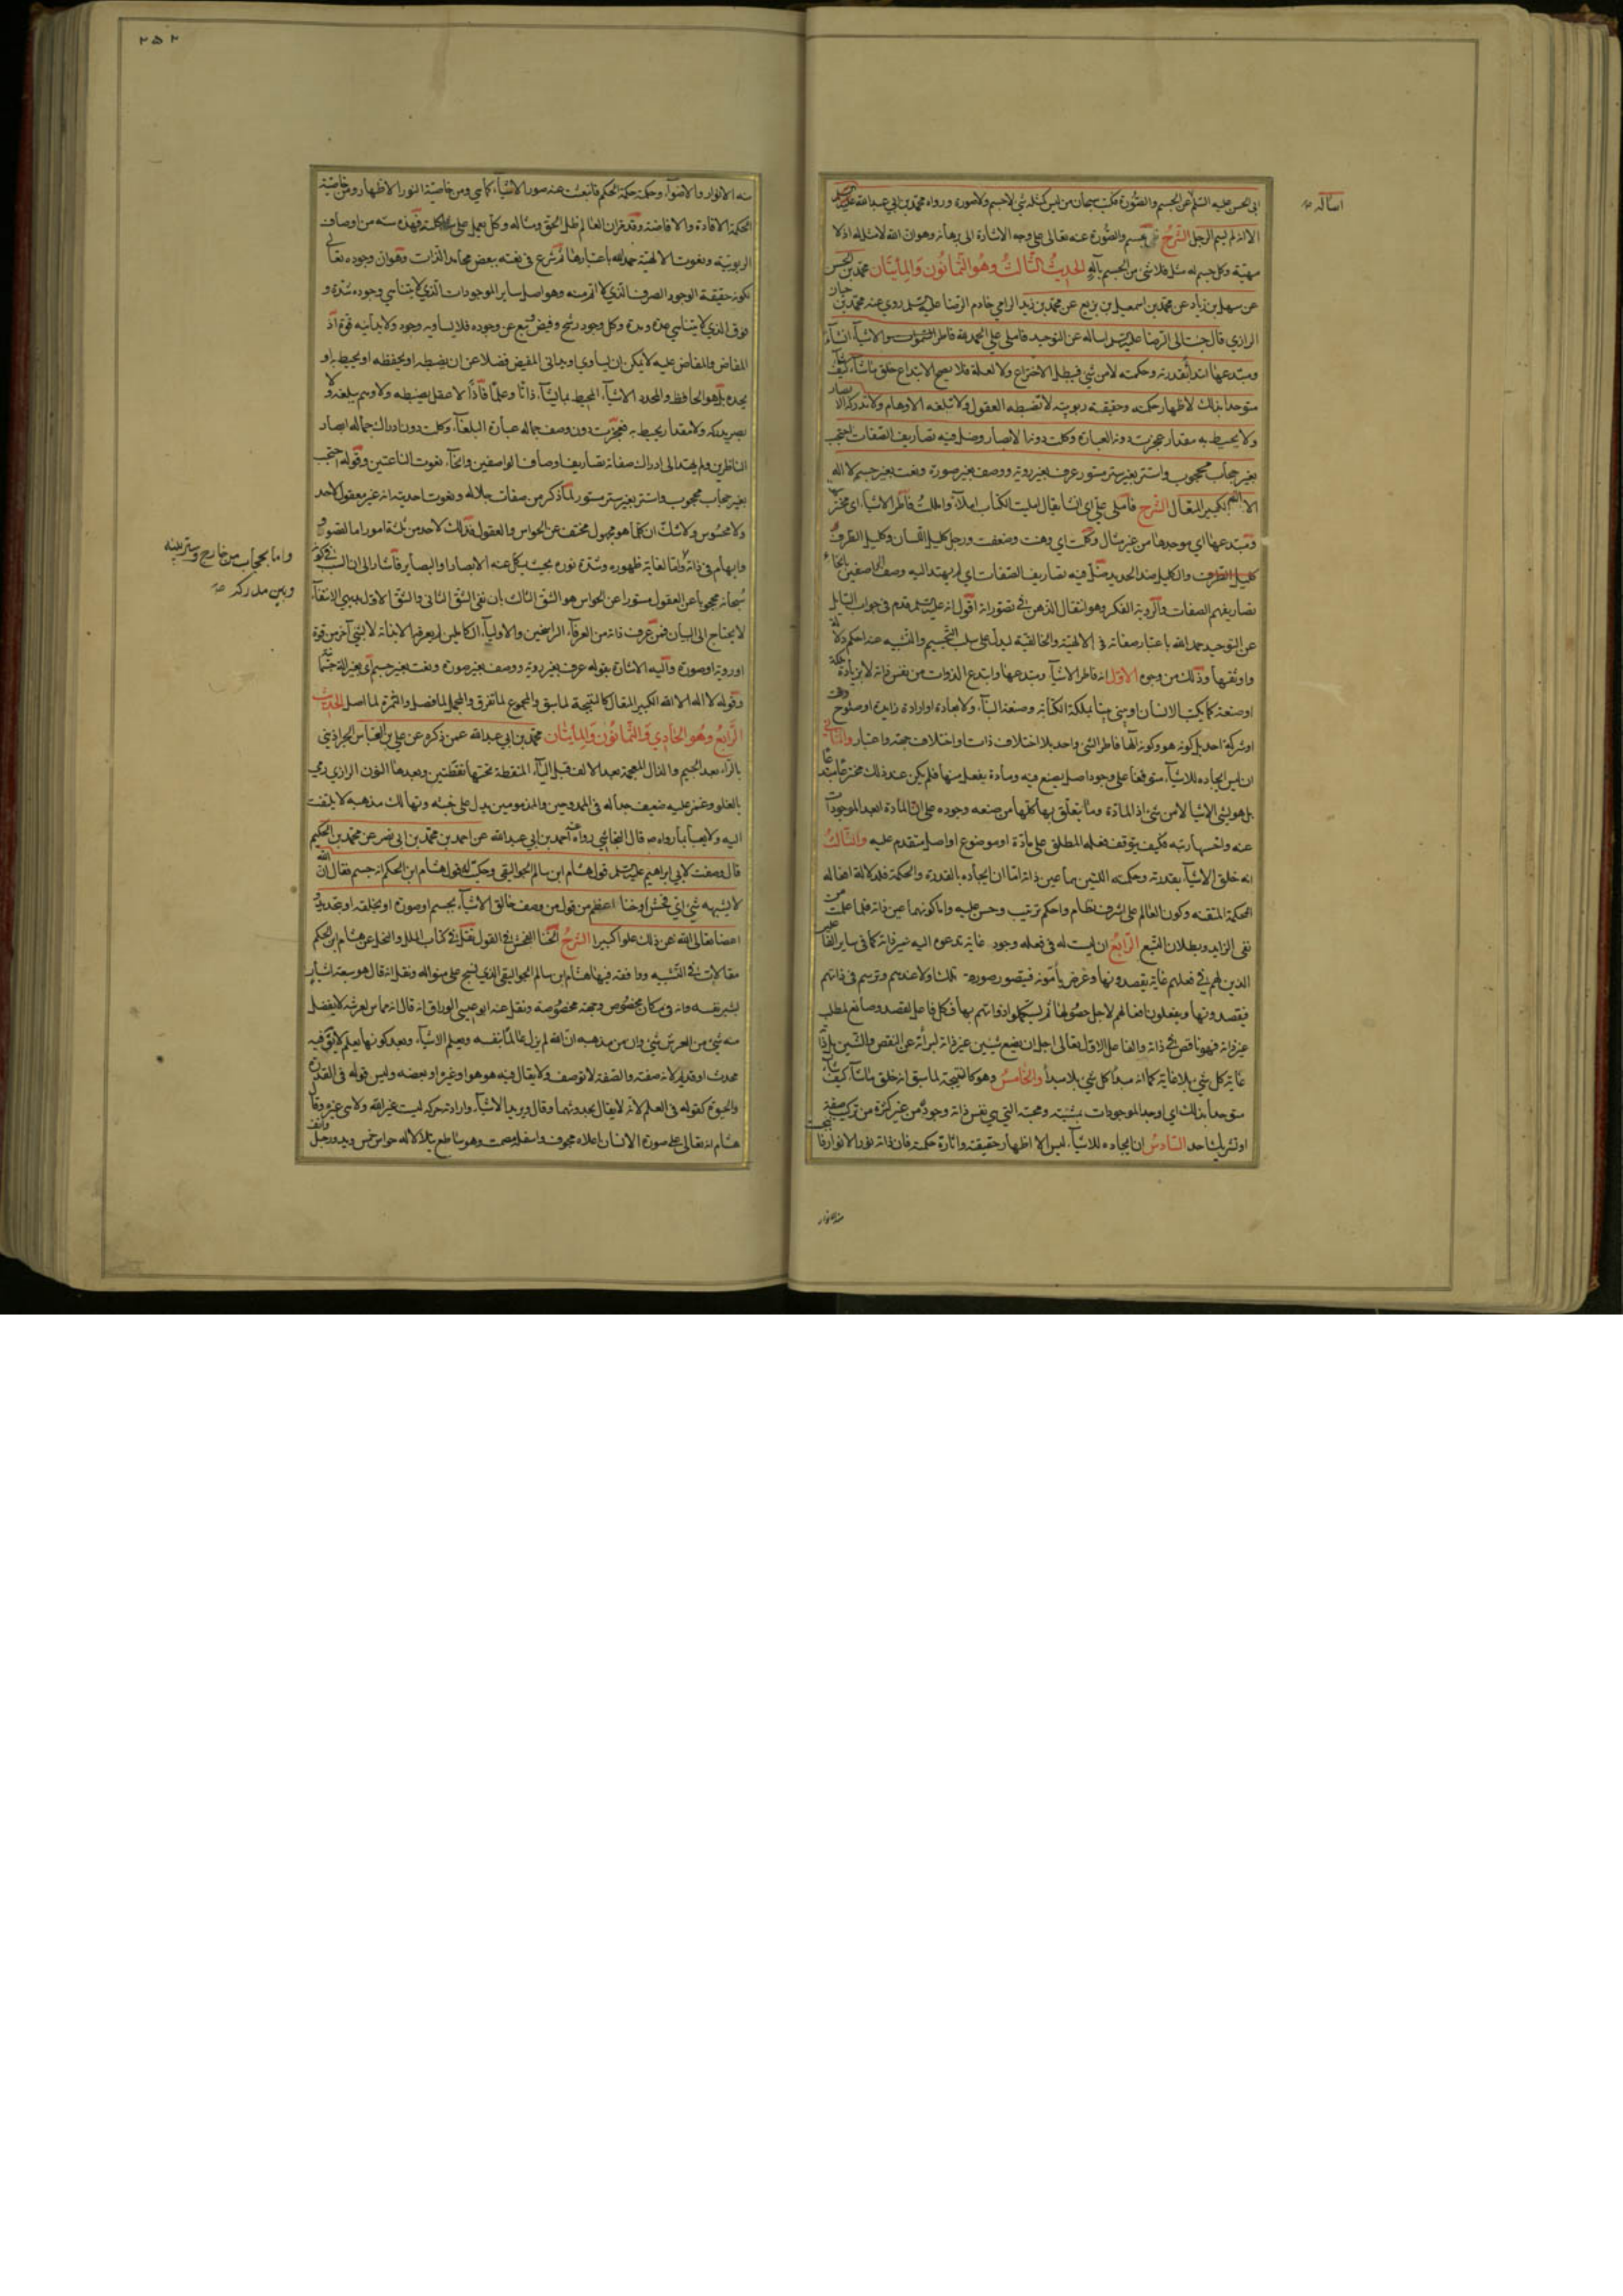 ابى الحسن عليه السلم عن الجسم والصورة فكتب سبحان من ليس كمثله شئ لا جسم ولا صورة ورواه محمد بن ابى عبدالله
الا انه لم يسم الرجل الشرح والصورة عنه تعالى على وجه الاشارة الى برهانه وهو ان الله لا مثل له اذ لا
مهية وكل جسم له مثل فلا شئ من الجسم باله الحديث الثالث وهو الثمانون والمأيتان محمد بن الحسن
عن سهل بن زياد عن محمد بن اسمعيل بن بزيع عن محمد بن زيد الرزامي خادم الرضا عليه السلم روى عنه محمد بن حسان
الرازي قال جئت الى الرضا عليه السلم اساله عن التوحيد فاملى على الحمد لله فاطر الاشياء انشاء
ومبتدعها ابتداء بقدرته وحكمته لا من شئ فيبطل الاختراع ولا لعلة فلا يصح الابتداع خلق ما شاء كيف شاء
متوحدا بذلك لاظهار حكمته وحقيقة ربوبيته لا تضبطه العقول ولا تبلغه الاوهام ولا تدركه الابصار
ولا يحيط به مقدار عجزت دونه العبارة وكلت دونه الابصار وضل فيه تصاريف الصفات احتجب
بغير حجاب محجوب واستتر بغير ستر مستور عرف بغير روية ووصف بغير صورة ونعت بغير جسم لا اله
الا الله الكبير المتعال الشرح فاملى على اى انشا يقال امليت الكتاب املاء وامللت فاطر الاشياء اى مخترعها
ومبتدعها اي موجدها من غير مثال وكلت اي وهنت وضعفت ورجل كليل اللسان وكليل الطرف
والكليل ضد الحديد وضل فيه تصاريف الصفات اي لم يهتد اليه وصف الواصفين بانحاء
تصاريفهم الصفات والروية الفكر وهو انتقال الذهن في تصوراته اقول انه عليه السلم قدم في جواب السايل
عن التوحيد حمد الله باعتبار صفاته في الالهية والخالقية ليدل على سلب التجسيم والتشبيه عنه احكم دلالة
واوثقها وذلك من وجوه الاول انه فاطر الاشياء ومبتدعها وابتدع الذوات من نفس ذاته لا بزيادة
او صنعة كما يكتب الانسان او يبنى بيتا بملكة الكتابة وصنعة البناء ولا بعادة او ارادة زايدة او سنوح وقت
او شركة احد بل كونه هو هو كونه الها فاطر الشى واحد بلا اختلاف ذات واختلاف جهة واعتبار والثانى
ان ليس ايجاده للاشياء متوقفا على وجود اصل يصنع فيه ومادة يفعل منها فلم يكن عند ذلك مخترعا مبتدعا
بل هو ينشئ الاشيا لا من شئ اذ المادة وما يتعلق بها كلها من صنعه وجوده على ان المادة ابعد الموجودات
عنه واخسها رتبة فكيف يتوقف فعله المطلق على مادة او موضوع او اصل متقدم عليه والثالث
انه خلق الاشياء بقدرته وحكمته اللتين هما عين ذاته اما ان ايجاده بالقدرة والحكمة فلدلالة افعاله
المحكمة المتقنة وكون العالم على اشرف نظام واحكم ترتيب وحسن عليه واما كونهما عين ذاته فلما علمت من
نفى الزايد وبطلان التبع الرابع ان ليست له فى فعله وجود غاية تدعوه اليه غير ذاته كما فى ساير الفاعلين
الذين لهم في فعلهم غاية يقصدونها وغرض يأمونه فيتصور صورة تلك اولا عندهم ويرتسم في ذاتهم
فيقصدونها ويفعلون افعالهم لاجل حصولها ثم ليستكملوا ذواتهم بها فكل فاعل لقصد وصانع لمطلب
غير ذاته فهو ناقص في ذاته والفاعل الاول تعالى اجل ان يصنع لشئ غير ذاته لبرائته عن النقص والشين بل ذاته
غاية كل شئ بلا غاية كما انه مبدأ كل شئ بلا مبدأ والخامس وهو كالنتيجة لما سبق انه خلق ما شاء كيف شاء
متوحدا بذلك اى اوجد الموجودات بمشيته ومحبته التي هي نفس ذاته وجوده من غير كثرة من تركيب صفة
او تشريك احد السادس ان ايجاده للاشياء ليس الا اظهار حقيقته واثارة حكمته فان ذاته نور الانوار فانبجست
منه الانوار
اساله صح
٢٥٢
منه الانوار والاضواء وحكمته حكمة الحكم فانبعث عنه صور الاشياء كما هى ومن خاصية النور الاظهار ومن خاصية
الحكمة الافادة والافاضة وقد مر ان العالم ظل الحق ومثاله وكل يعمل على شاكلته فهذه ستة من اوصاف
الربوبية ونعوت الالهية حمد الله باعتبارها ثم شرع فى نعته ببعض محامد الذات وهو ان وجوده تعالى
لكونه حقيقة الوجود الصرف الذى لا اتم منه وهو اصل ساير الموجودات الذى لا يتناهى وجوده شدة و
فوق الذى لا يتناهى عدة ومدة وكل وجود رشح وفيض تبع عن وجوده فلا يساويه وجود ولا يدانيه قوة اذ
المفاض والمفاض عليه لا يمكن ان يساوى او يدانى المفيض فضلا عن ان يضبطه او يحفظه او يحيط به او
يحده بل هو الحافظ والمحدد الاشياء المحيط بها ذاتا وعلما فاذا لا عقل يضبطه ولا وهم يبلغه ولا
بصر يدركه ولا مقدار يحيط به فعجزت دون وصف جماله عبارة البلغاء وكلت دون ادراك جماله ابصار
الناظرين ولم يهتد الى ادراك صفاته تصاريف اوصاف الواصفين وانحاء نعوت الناعتين وقوله احتجب
بغير حجاب محجوب واستتر بغير ستر مستور لما ذكر من صفات جلاله ونعوت احديته انه غير معقول لاحد
ولا محسوس ولا شك ان كلما هو مجهول مختف عن الحواس والعقول فذلك لاحد من ثلثة امور اما لقصور
وابهام فى ذاته واما لغاية ظهوره وشدة نوره بحيث يكل عنه الابصار والبصاير فاشار الى ان السبب في كونه
سبحانه محجوبا عن العقول مستورا عن الحواس هو الشق الثالث بان نفى الشق الثانى والشق الاول بديهى الانتفاء
لا يحتاج الى البيان فمن عرف ذاته من العرفاء الراسخين والاولياء الكاملين لم يعرفه الا بذاته لا بشئ آخر من قوة
او روية او صورة واليه الاشارة بقوله عرف بغير روية ووصف بغير صورة ونعت بغير جسم اى بغير الة جسمانية
وقوله لا اله الا الله الكبير المتعال كالنتيجة لما سبق والمجموع لما تفرق والمجمل لما فصل والثمرة لما اصل الحديث
الرابع وهو الحادى والثمانون والمأيتان محمد بن ابى عبدالله عمن ذكره عن على بن العباس الجراذينى
بالراء بعد الجيم والذال المعجمة بعد الالف قبل الياء المنقطة تحتها نقطتين وبعدها النون الرازى رمى
بالغلو وغمز عليه ضعيف جدا له فى الممدوحين والمذمومين يدل على خبثه وتهالك مذهبه لا يلتفت
اليه ولا يعبأ بما رواه صه قال النجاشى رواه عنه احمد بن ابى عبدالله عن احمد بن محمد بن ابى نصر عن محمد بن الحكيم
قال وصفت لابى ابراهيم عليه السلم قول هشام ابن سالم الجواليقى وحكيت له قول هشام ابن الحكم انه جسم فقال ان الله
لا يشبهه شئ اى فحش او خنا اعظم من قول من وصف خالق الاشياء بجسم او صورة او بخلقه او بتحديد و
اعضا تعالى الله عن ذلك علوا كبيرا الشرح الخنا الفحش في القول نقل في كتاب الملل والنحل عن هشام ابن الحكم
مقالات في التشبيه ووافقه فيها هشام ابن سالم الجواليقى الذي نسج على منواله ونقل انه قال هو سبعة اشبار
بشبر نفسه وانه في مكان مخصوص وجهة مخصوصة ونقل عنه ابو عيسى الوراق انه قال انه مماس لعرشه لا يفضل
منه شئ من العرش شئ وان من مذهبه ان الله لم يزل عالما بنفسه ويعلم الاشياء وبعد كونها بعلم لا يق فيه
محدث او قديم لانه صفة والصفة لا توصف ولا يقال فيه هو هو او غيره او بعضه وليس قوله فى القدرة
والحيوة كقوله في العلم لانه لا يقال بحدوثهما وقال ويريد الاشياء وارادته حركة ليست غير الله ولا هى غيره وقال
هشام انه تعالى على صورة الانسان اعلاه مجوف واسفله مصمت وهو ساطع يتلألأ له حواس خمس ويد ورجل وانف
واما بحجاب من خارج وستر بينه
وبين مدركه صح